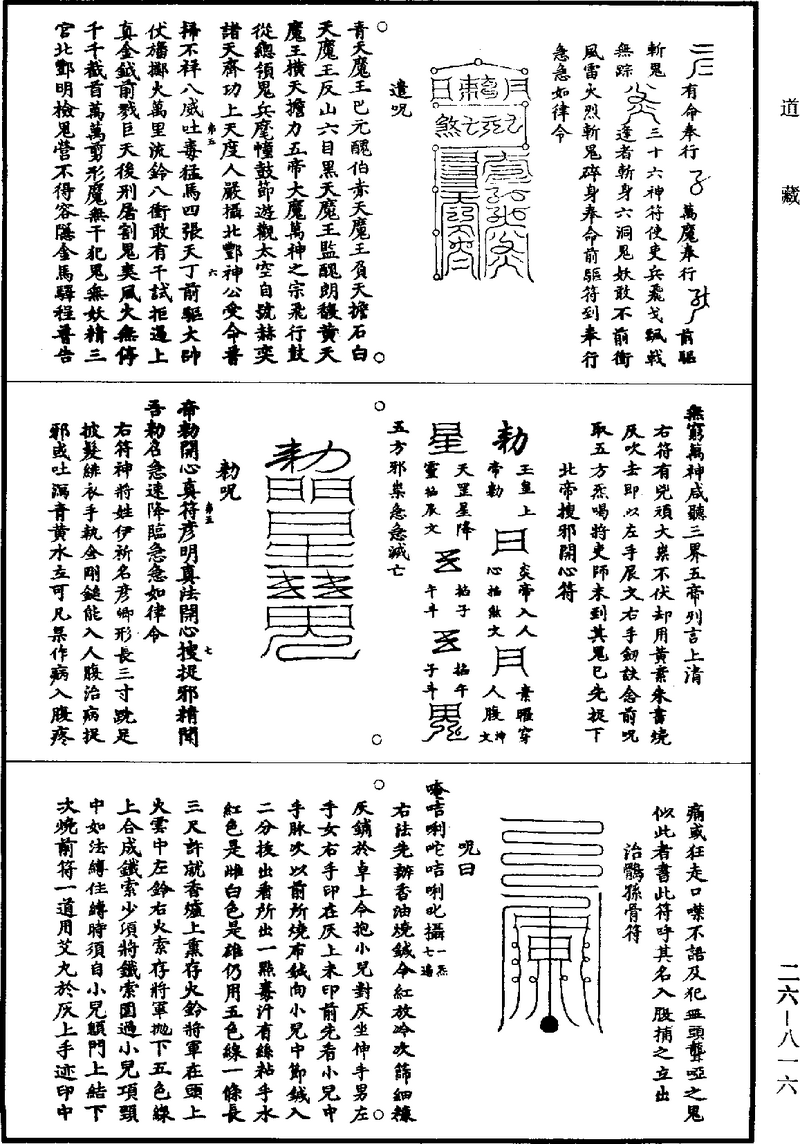 道藏
有命奉行 萬魔奉行 前驅
斬鬼 三十六神符使吏兵飛戈颩戟
無踪 逢者斬身六洞鬼妖敢不前衝
風雷火烈斬鬼碎身奉命前驅符到奉行
急急如律令
遣呪
青天魔王巴元醜伯赤天魔王負天擔石白
天魔王反山六目黑天魔王監醜朗馥黃天
魔王橫天擔力五帝大魔萬神之宗飛行鼓
從總領鬼兵麾幢鼓節遊觀太空自號赫奕
諸天齊功上天度人嚴攝北酆神公受命普
掃不祥八威吐毒猛馬四張天丁前驅大帥
第五 六
伏旛擲火萬里流鈴八衝敢有干試拒遏上
真金鉞前戮巨天後刑屠割鬼爽風火無停
千千截首萬萬剪形魔無干犯鬼無妖精三
宮北酆明檢鬼營不得容隱金馬驛程普告
無窮萬神咸聽三界五帝列言上清
右符有兇頑大祟不伏却用黃素朱書燒
灰吹去即以左手辰文右手劒訣念前呪
取五方炁喝將吏師未到其鬼已先捉下
北帝搜邪開心符
勅 玉皇上帝勅 日 炎帝入人心掐煞文 月 素曜穿人腹掐文
星 天罡星降靈掐辰文 掐子午斗 掐午子斗
五方邪祟急急滅亡
勅呪
帝勅開心真符彥明真法開心搜捉邪精聞
第五 七
吾勅名急速降臨急急如律令
右符神將姓伊祈名彥卿形長三寸跣足
披髮緋衣手執金剛鎚能入人腹治病捉
邪或吐瀉青黃水立可凡祟作病入腹疼
痛或狂走口噤不語及犯血頭聾啞之鬼
似此者書此符呼其名入股捕之立出
治鶻孫骨符
呪曰
唵咭唎咜咭唎叱攝一炁七遍
右法先辦香油燒鍼令紅放冷次篩細糠
灰鋪於卓上令抱小兒對灰坐伸手男左
手女右手印在灰上未印前先看小兒中
手脉次以前所燒布鍼向小兒中節鍼入
二分拔出看所出一點毒汁有絲粘乎水
紅色是雌白色是雄仍用五色線一條長
三尺許就香爐上熏存火鈴將軍在頭上
火雲中左鈴右火索存將軍拋下五色線
上合成鐵索少項將鐵索圍過小兒項頸
中如法縛住縛時須自小兒顖門上結下
次燒前符一道用艾丸於灰上手迹印中
二六—八一六